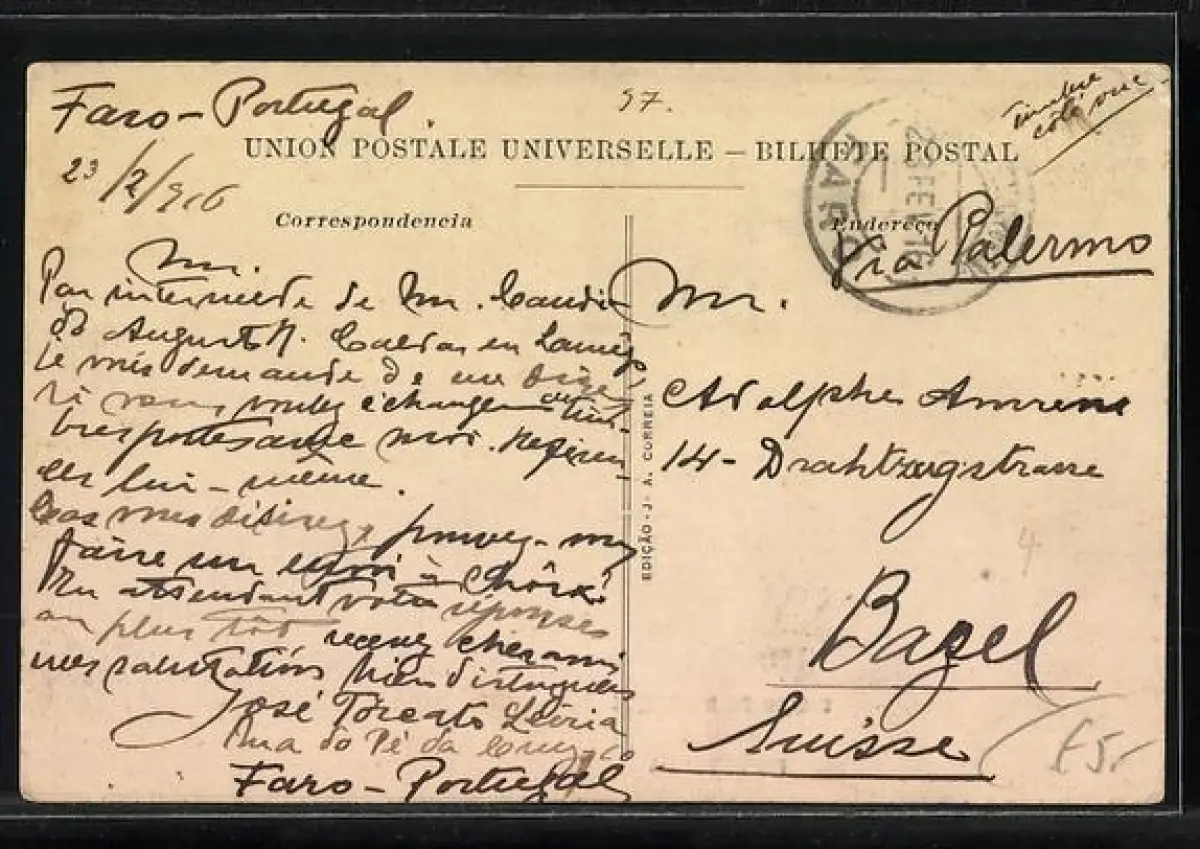 Faro - Portugal.
97.
timbre
côté vue
UNION POSTALE UNIVERSELLE — BILHETE POSTAL
23/2/916
Correspondencia
Endereço
FARO
Via Palermo
Mr.
Par intermede de Mr. Candi-
do August N. Caldas en Lamego
je vous demande de me dire
si vous voulez echanger des tim-
bres postes avec moi. Referen-
ces lui-même.
Cas vous désirez, pouvez-me
faire un envoi à choix!
En attendant votre réponses
au plus tôt recevez cher ami
mes salutations bien distinguées
José Liria
Rua do Pé da Cruz,
Faro - Portugal
EDIÇÃO - J. A. CORREIA
Mr.
Adolphe
14 - Drahtzugstrasse
Bazel
Suisse
4
£5,-